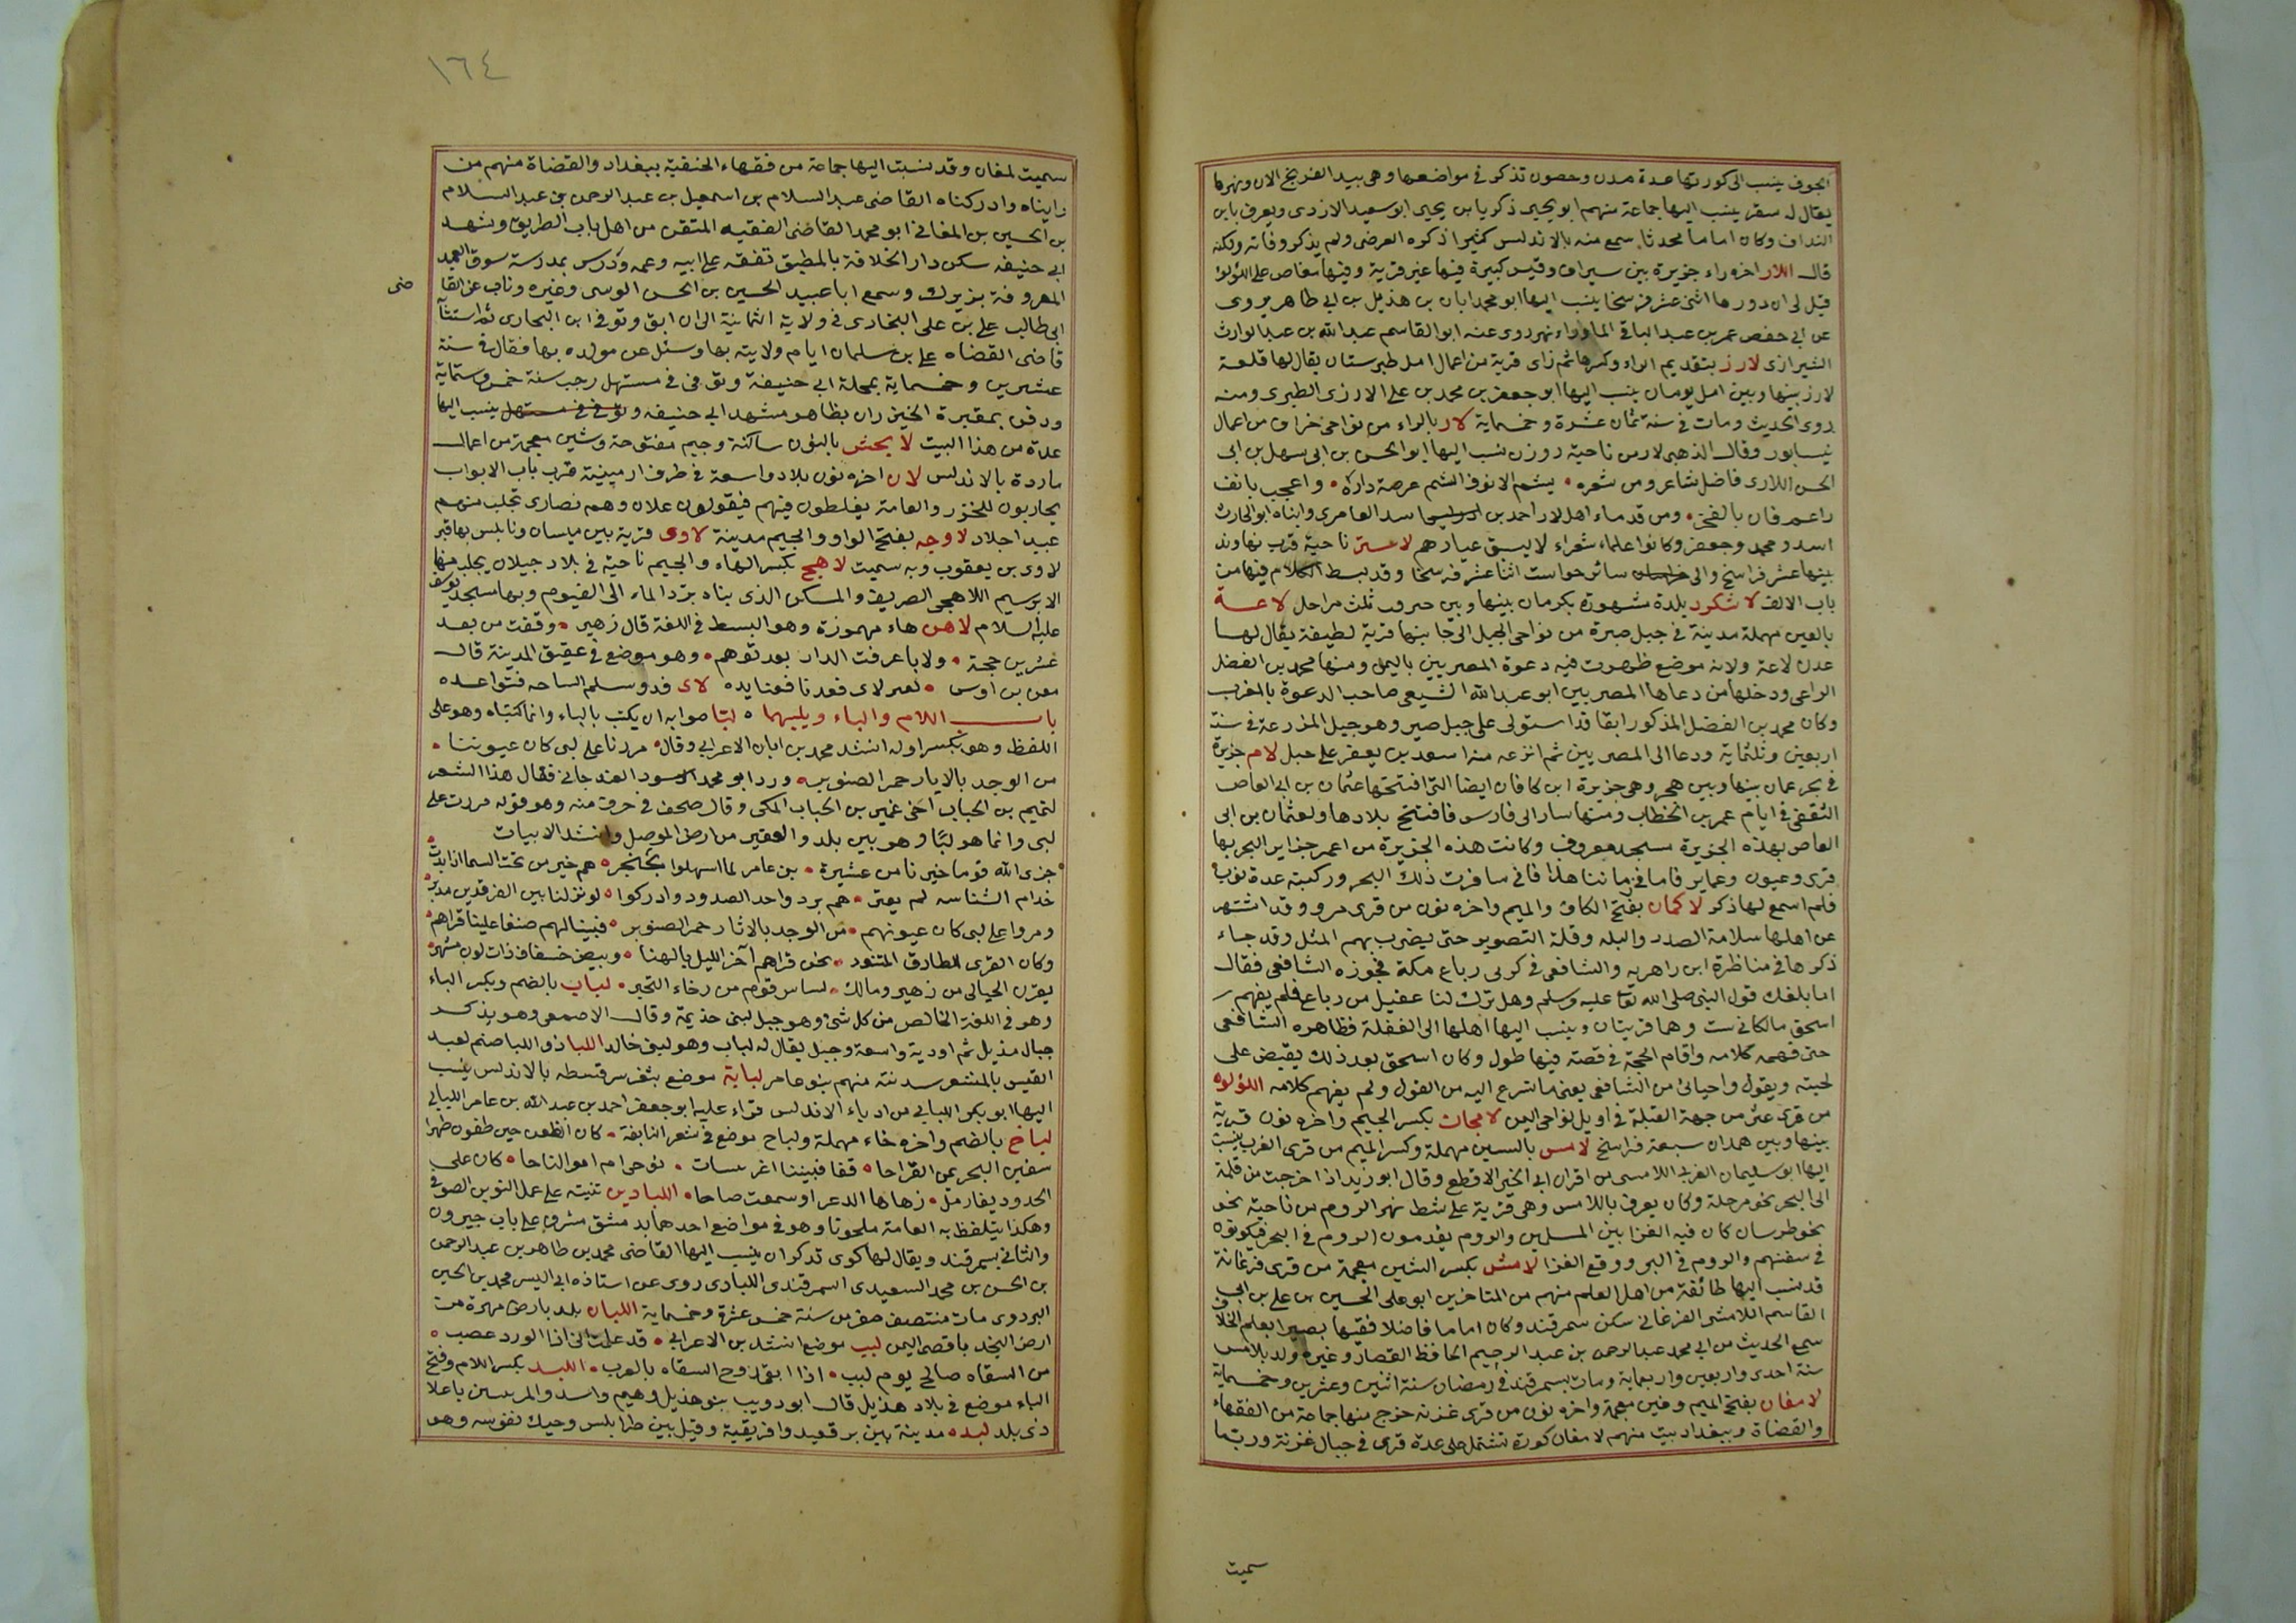 الجوف ينسب الى كورتها عدة مدن وحصون تذكر في مواضعها وهي بيد الفرنج الان ونهرها
يقال له سقر ينسب اليها جماعة منهم ابو يحيى زكريا بن يحيى ابو سعيد الازدى ويعرف بابن
النداف وكان اماما محدثا سمع منه بالاندلس كثيرا ذكره الفرضى ولم يذكر وفاته ولكنه
قال اللار اخره راء جزيرة بين سيراف وقيس كبيرة فيها غير قرية وفيها مغاص على اللؤلؤ
قيل لى ان دورها اثنى عشر فرسخا ينسب اليها ابو محمد ابان بن هذيل بن ابي طاهر يروى
عن ابي حفص عمر بن عبد الباقى الماوراء نهر روى عنه ابو القاسم عبد الله بن عبد الوارث
الشيرازى لارز بتقديم الراء وكسرها ثم زاى قرية من اعمال امل طبرستان يقال لها قلعة
لارز بينها وبين امل يومان ينسب اليها ابو جعفر بن محمد بن على الارزى الطبرى ومنه
روى الحديث ومات في سنة ثمان عشرة وخمسماية لار بالراء من نواحى خراف من اعمال
نيسابور وقال الذهبى لار من ناحية روزن نسب اليها ابو الحسن بن ابى سهل بن ابى
الحسن اللارى فاضل شاعر ومن شعره . يشم الانوف الشم عرصة داره . واعجب بانف
راعم فان بالفخر . ومن قدماء اهل لار احمد بن اسد العامرى وابناه ابو الحارث
اسد ومحمد وجعفر وكانوا علماء شعراء لا يسبق عبارهم لاشتر ناحية قرب نهاوند
بينها عشر فراسخ والى سائر خواست اثنا عشر فرسخا وقد بسط الكلام فيها من
باب الالف لاشكرد بلدة مشهورة بكرمان بينها وبين جيروت ثلث مراحل لاعة
بالعين مهملة مدينة في جبل صبرة من نواحى الجبل الى جانبها قرية لطيفة يقال لها
عدن لاعة ولانه موضع ظهرت فيه دعوة المصريين باليمن ومنها محمد بن الفضل
الراعى ودخلها من دعاها المصريين ابو عبد الله الشيعى صاحب الدعوة بالمغرب
وكان محمد بن الفضل المذكور ابقا قد استولى على جبل صبر وهو جبل المذرعة في سنة
اربعين وثلثماية ودعا الى المصريين ثم انزعه منه اسعد بن يعفر على جبل لام جزيرة
في بحر عمان بينها وبين هجر وهي جزيرة ابن كافان ايضا التى افتتحها عثمان بن ابى العاص
الثقفى في ايام عمر بن الخطاب ومنها سار الى فارس فافتتح بلادها ولعثمان بن ابى
العاص بهذه الجزيرة مسجد معروف وكانت هذه الجزيرة من اعمر جزاير البحر بها
قرى وعيون وعماير فاما في زماننا هذا فانى سافرت ذلك البحر وركبته عدة نوب
فلم اسمع لها ذكر لاكمان بفتح الكاف والميم واخره نون من قرى مرو وقد اشتهر
عن اهلها سلامة الصدر والبله وقلة التصوير حتى يضرب بهم المثل وقد جاء
ذكرها في مناظرة ابن راهويه والشافعى في كرى رباع مكة فجوزه الشافعى فقال
اما بلغك قول النبى صلى الله تعا عليه وسلم وهل ترك لنا عقيل من رباع فلم يفهم
اسحق مالكانى ست وهما قريتان وينسب اليها اهلها الى الغفلة فظاهره الشافعى
حتى فهمه كلامه واقام الحجة في قصة فيها طول وكان اسحق بعد ذلك يقبض على
لحيته ويقول واحيائى من الشافعى يعنى ما تسرع اليه من القول ولم يفهم كلامه اللؤلؤه
من قرى عثر من جهة القبلة في اويل نواحى اليمن لامجان بكسر الجيم واخره نون قرية
بينها وبين همدان سبعة فراسخ لامس بالسين مهملة وكسر الميم من قرى الغرب ينسب
اليها ابو سليمان الغربى اللامسى من اقران ابى الخير الاقطع وقال ابو زيد اذا خرجت من قلمة
الى البحر نحو مرحلة وكان يعرف باللامس وهى قرية على شط نهر الروم من ناحية نحو
نحو طرسان كان فيه الفدا بين المسلمين والروم يقدمون الروم في البحر فيكونوا
في سفنهم والروم في البر ووقع الفدا لامش بكسر الشين معجمة من قرى فرغانة
قد ينسب اليها طائفة من اهل العلم منهم من المتاخرين ابو على الحسين بن على بن ابى
القاسم اللامشى الفرغانى سكن سمرقند وكان اماما فاضلا فقيها بصيرا بعلم الخلاف
سمع الحديث من ابي محمد عبد الرحمن بن عبد الرحيم الحافظ القصار وغيره ولد بلامس
سنة احدى واربعين واربعماية ومات بسمرقند في رمضان سنة اثنين وعشرين وخمسماية
لامغان بفتح الميم وغين معجمة واخره نون من قرى غزنه خرج منها جماعة من الفقهاء
والقضاة وببغداد بيت منهم لامغان كورة تشتمل على عدة قرى في جبال غزنة وربما
سميت
١٦٤
سميت لمغان وقد نسبت اليها جماعة من فقهاء الحنفية ببغداد والقضاة منهم من
رايناه وادركناه القاضى عبد السلام بن اسمعيل بن عبد الرحمن بن عبد السلام
بن الحسين بن المغانى ابو محمد القاضى الفقيه المتقن من اهل باب الطريق ومشهد
ابى حنيفه سكن دار الخلافة بالمطبق تفقه على ابيه وعمه ودرس بمدرسة سوق العميد
المعروفة بزيرك وسمع ابا عبيد الحسين بن الحسن الوسى وغيره وناب عن القا
ضى
ابى طالب على بن على البخارى في ولاية الثانية الى ان ابق وتوفى ابن البخارى ثم استثا
قاضى القضاه على بن سلمان ايام ولايته بها وسئل عن مولده بها فقال في سنة
عشرين وخمسماية بمحلة ابى حنيفة وتوفى في مستهل رجب سنة خمس وستماية
ودفن بمقبرة الخيزران بظاهر مشهد ابى حنيفه وتوفى في مستهل ينسب اليها
عدة من هذا البيت لا يجش بالنون ساكنة وجيم مفتوحة وشين معجمة من اعمال
ماردة بالاندلس لان اخره نون بلاد واسعة في طرف ارمينية قرب باب الابواب
يجاربون للخزر والعامة يغلطون فيهم فيقولون علان وهم نصارى تجلب منهم
عبيد اجلاد لاوجه بفتح الواو والجيم مدينة لاوى قرية بين ميسان ونابلس بها قبر
لاوى بن يعقوب وبه سميت لاهج بكسر الهاء والجيم ناحية في بلاد جيلان يجلب منها
الابرسيم اللاهجى الصريف والمسكر الذى بناه برد الماء الى الفيوم وبها مسجد يوسف
عليه السلام لاهن هاء مهموزة وهو البسط في اللغة قال زهير . وقفت من بعد
عشرين حجة . ولايا عرفت الدار بعد توهم . وهو موضع في عقيق المدينة قال
معن بن اوس . لعمر لاى فعدنا فعتايده لاى فذو سلم الساحه فنواعده
باب اللام والباء ويليهما . لبا صوابه ان يكتب بالياء وانما كتبناه وهو على
اللفظ وهو بكسر اوله انشد محمد بن ابان الاعرابى وقال مررنا على لبى كان عيوننا .
من الوجد بالايار حمر الصنوبر . ورد ابو محمد الاسود الغندجانى فقال هذا الشعر
لتميم بن الحباب اخى عمير بن الحباب المكى وقال صحف في حرف منه وهو قوله مررت على
لبى وانما هو لبا وهو بين بلد والعقير من ارض الموصل وانشد الابيات
جزى الله قوما خيرنا من عشيرة . بن عامر لما اسهلوا بخنجر . هم خير من تحت السما اذا بدت
خدام النساء لم يعتر . هم برد واحد الصدود وادركوا . لونزلنا بين الفرقدين مدبر
ومروا على لبى كان عيونهم . من الوجد بالاثار حمر الصنوبر . فبينا لهم ضيفا علينا قراهم
وكان القرى للطارق المتنور . نحن قراهم آخر الليل بالهنا . وبيض خفاف ذات لون مشهر
يعزن الحبالى من زهير ومالك . لسا من قوم من رخاء التحير . لباب بالضم ويكسر الباء
وهو في اللغة الخالص من كل شئ وهو جبل لبنى خذيمة وقال الاصمعى وهو بذكر
جبال هذيل ثم اودية واسعة وجبل يقال له لباب وهو لبنى خالد اللبا ذو اللبا صنم لعبد
القيس بالمشقر سدنته منهم بنو عامر لباية موضع بثغر سرقسطه بالاندلس ينسب
اليها ابو بكر اللبانى من ادباء الاندلس قراء عليه ابو جعفر احمد بن عبد الله بن عامر اللبابى
لباخ بالضم واخره خاء مهملة ولباح موضع في شعر النابغة . كان الظعن حين طفون ظهرا
سفين البحر يممن القراحا . قفا فبيننا اغرسات . نوحى ام اموا لتاحا . كان على
الحدود يفار مثل . زهاها الدعر او سمعت صاحا . اللبادين تثنية على عمل النوبين الصوفى
وهكذا يتلفظ به العامة ملحونا وهو في مواضع احدهما بدمشق مشرف على باب جيرون
والثانى بسمرقند ويقال لها كوى تدكران ينسب اليها القاضى محمد بن طاهر بن عبد الرحمن
بن الحسن بن محمد السعيدى السمرقندى اللبادى روى عن استاذه ابى اليسر محمد بن الحسين
البردوى مات منتصف صفر من سنة خمس عشرة وخمسماية اللبان بلد بارض مهرة من
ارض النجد باقصى اليمن لبب موضع انشد بن الاعرابى . قد علمت انى اذا الورد عصب .
من السقاه صالح يوم لبب . اذا ابقى زوج السقاه بالعرب . اللبد بكسر اللام وفتح
الباء موضع في بلاد هذيل قال ابو ذويب بنو هذيل وهيم واسد والمرسين باعلا
ذى بلد لبده مدينة بين برقه وافريقية وقيل بين طرابلس وجبل نفوسه وهو